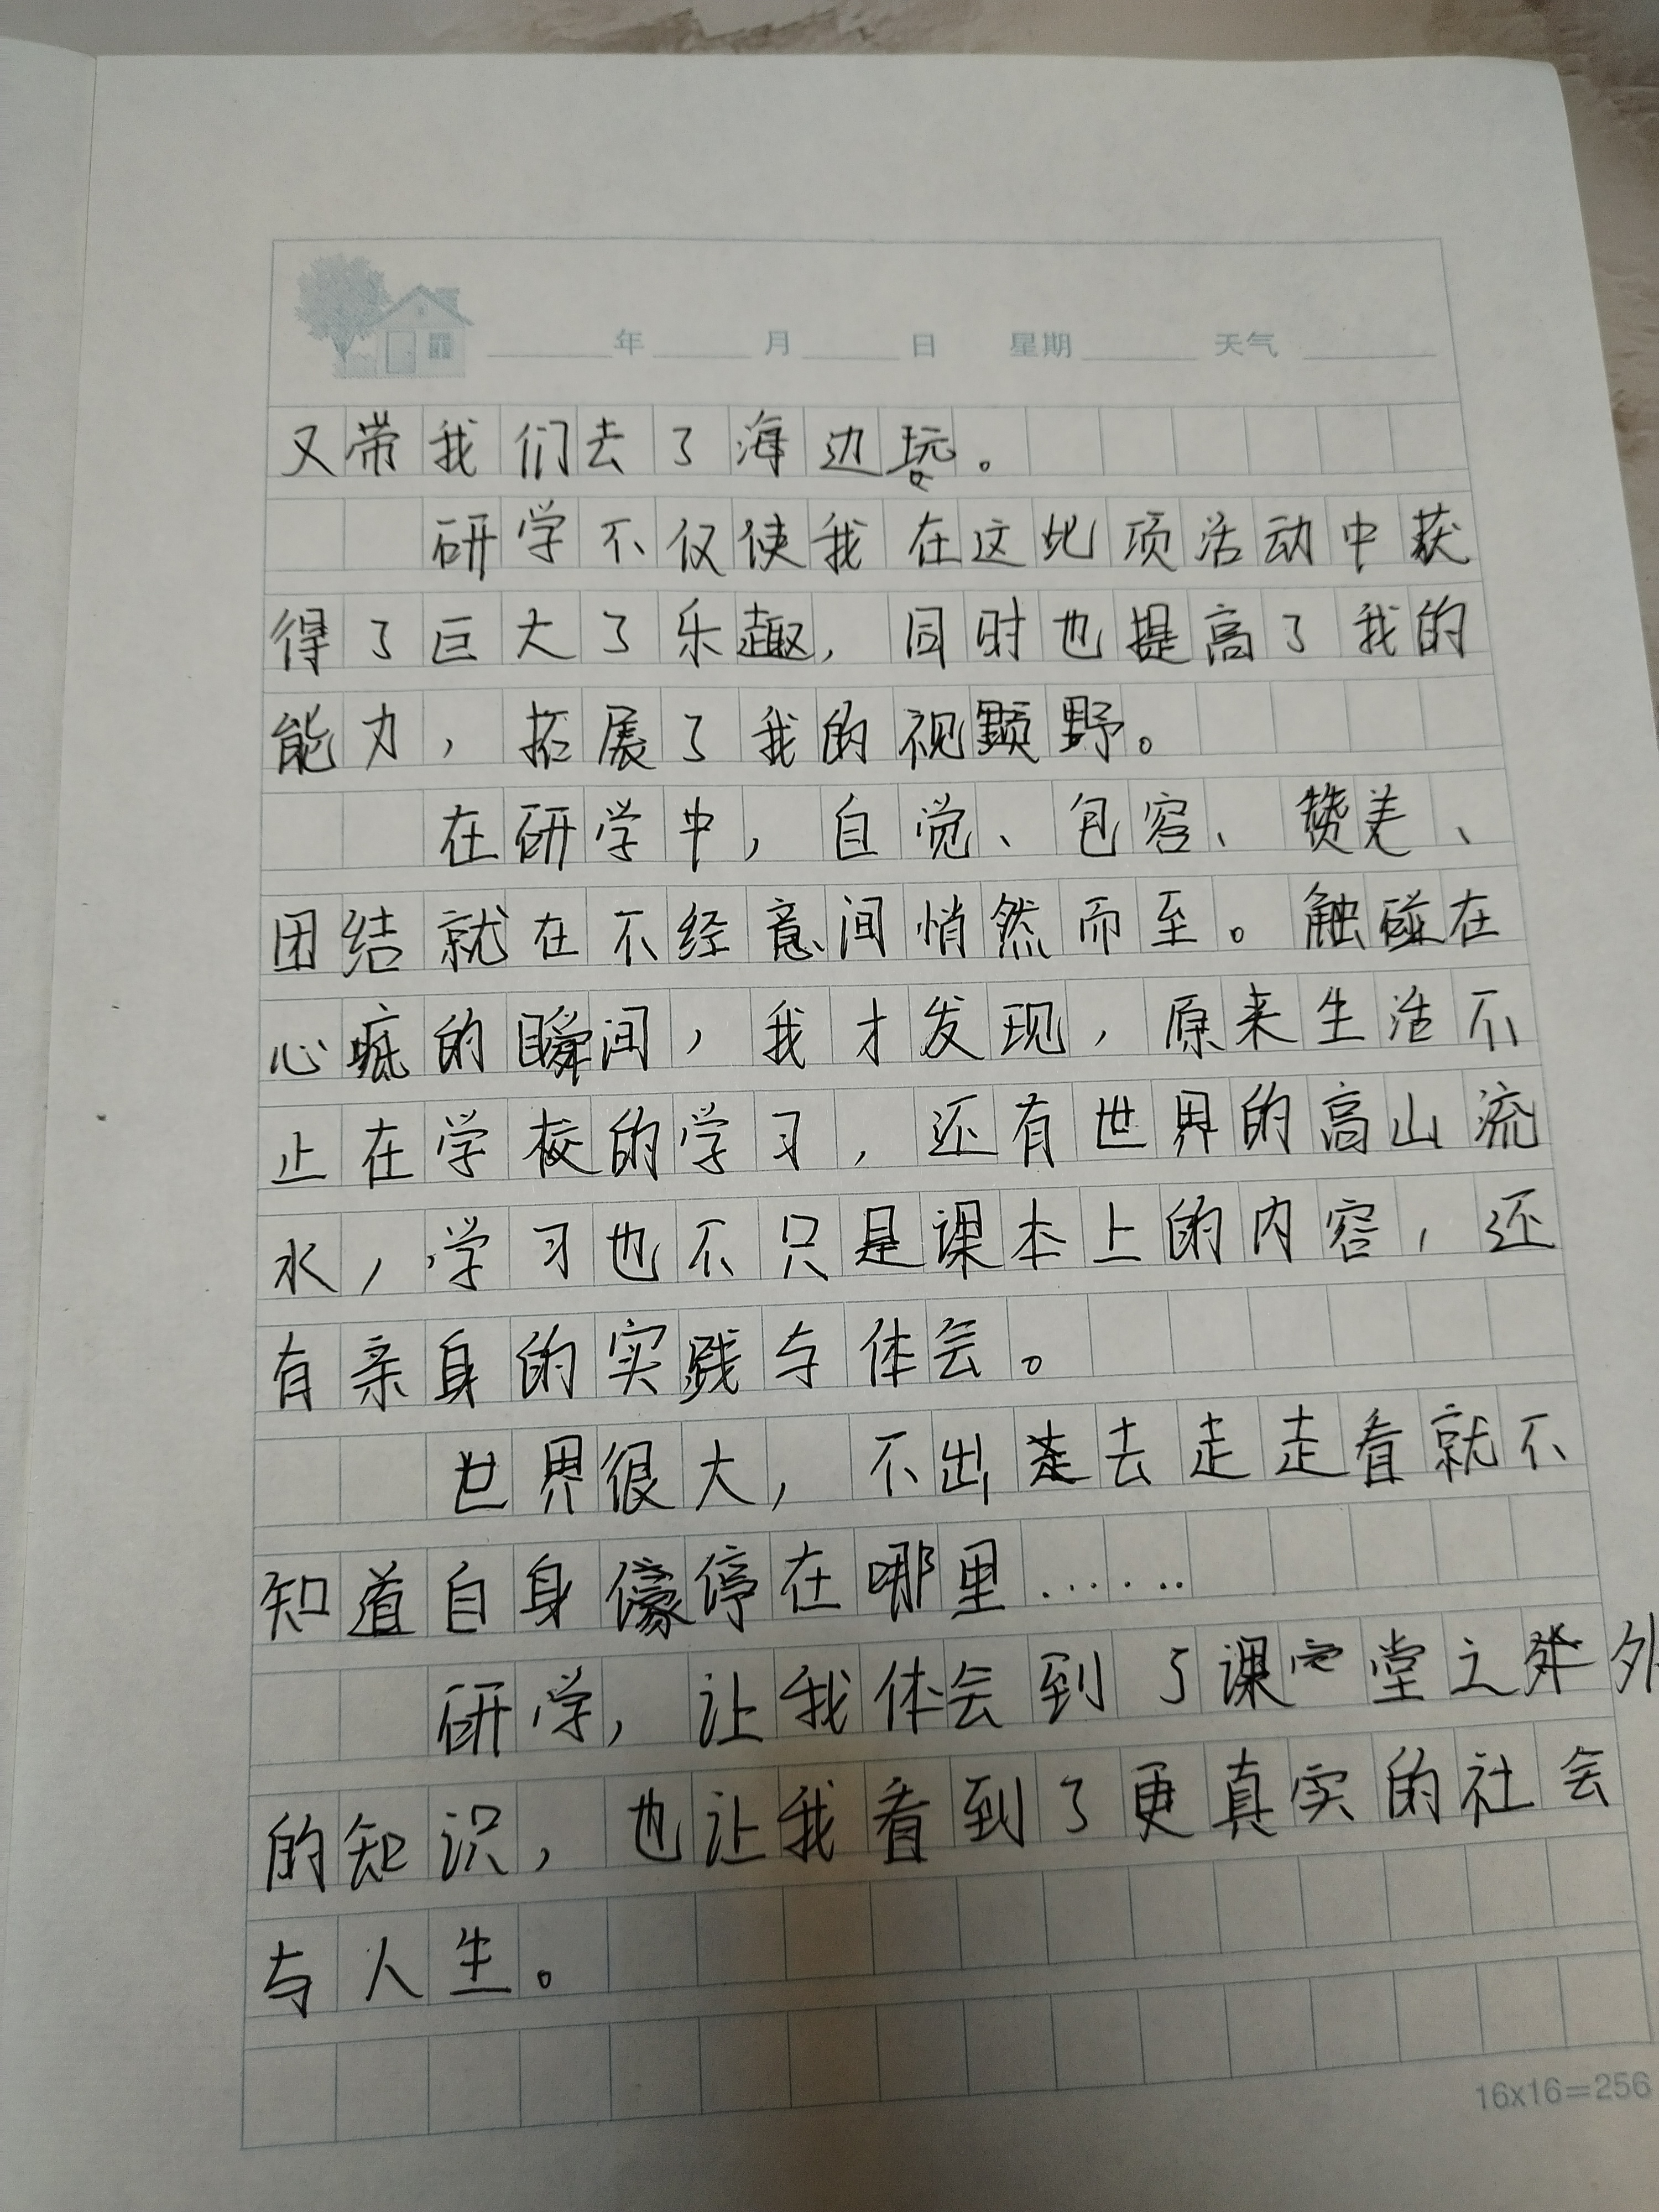 年 月 日 星期 天气
又带我们去了海边玩。
研学不仅使我在这此项活动中获
得了巨大了乐趣，同时也提高了我的
能力，拓展了我的视野。
在研学中，自觉、包容、赞美、
团结就在不经意间悄然而至。触碰在
心底的瞬间，我才发现，原来生活不
止在学校的学习，还有世界的高山流
水，学习也不只是课本上的内容，还
有亲身的实践与体会。
世界很大，不出去走走看就不
知道自身停在哪里……
研学，让我体会到了课堂之外
的知识，也让我看到了更真实的社会
与人生。
16x16=256